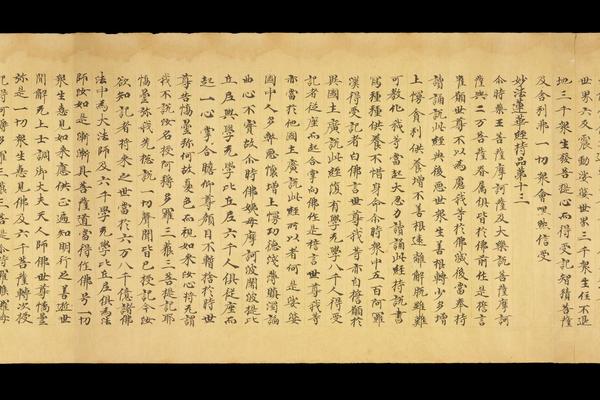 世界六反震動娑婆世界三千衆生住不退
地三千衆生發菩提心而得受記智積菩薩
及舍利弗一切衆會嘿然信受
妙法蓮華經持品第十三
尒時藥王菩薩摩訶薩及大樂說菩薩摩訶
薩與二万菩薩眷屬俱皆於佛前作是誓言
唯願世尊不以為慮我等於佛滅後當奉持
讀誦說此經典後惡世衆生善根轉少多增
上慢貪利供養增不善根遠離解脫雖難
可教化我等當起大忍力讀誦此經持說書
寫種種供養不惜身命尒時衆中五百阿羅
漢得受記者白佛言世尊我等亦自誓願於
異國土廣說此經復有學无學八千人得受
記者從座而起合掌向佛作是誓言世尊我等
亦當於他國土廣說此經所以者何是娑婆
國中人多弊惡懷增上慢功德淺薄瞋濁諂
曲心不實故尒時佛姨母摩訶波闍波提比
丘尼與學无學比丘尼六千人俱從座而
起一心合掌瞻仰尊顏目不暫捨於時世
尊告憍曇弥何故憂色而視如來汝心將无謂
我不說汝名授阿耨多羅三藐三菩提記耶
憍曇弥我先總說一切聲聞皆已授記今汝
欲知記者將來之世當於六万八千億諸佛
法中為大法師及六千學无學比丘尼俱為法
師汝如是漸漸具菩薩道當得作佛号一切
衆生憙見如來應供正遍知明行足善逝世
間解无上士調御丈夫天人師佛世尊憍曇
弥是一切衆生憙見佛及六千菩薩轉次授
記得阿耨多羅三藐三菩提尒時羅睺羅母